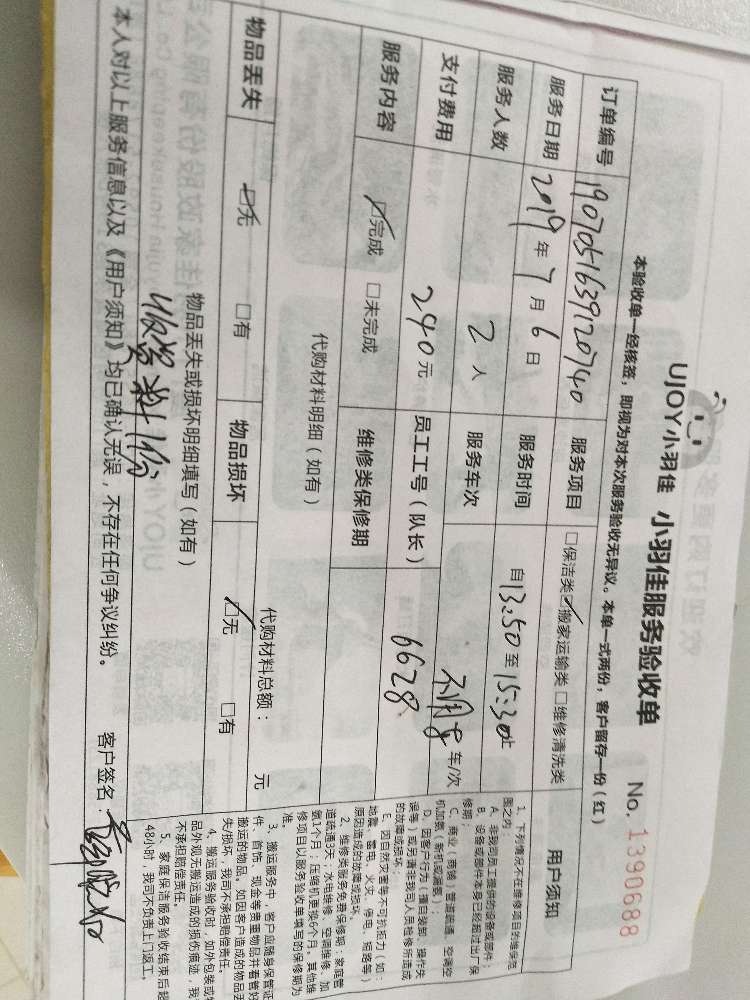 UJOY小羽佳 小羽佳服务验收单 No. 1390688
本验收单一经核签，即视为对本次服务验收无异议。本单一式两份，客户留存一份（红）
订单编号 190705163920740 服务项目 □保洁类☑搬家运输类□维修清洗类
服务日期 2019年7月6日 服务时间 自13:50至15:30止
服务人数 2人 服务车次 不用 车/次
支付费用 240元 员工工号（队长） 6628
服务内容 ☑完成 □未完成 维修类保修期
代购材料明细（如有） 代购材料总额： 元
物品丢失 ☑无 □有 物品损坏 ☑无 □有
物品丢失或损坏明细填写（如有）
收 1份
本人对以上服务信息以及《用户须知》均已确认无误，不存在任何争议纠纷。 客户签名：
用户须知
1、下列情况不在维修项目的维保范
围之内：
A、非我司员工提供的设备或部件；
B、设备或部件本身已经超过出厂保
修期；
C、商业（商铺）管道疏通、空调空
机加氨（新机或漏氨）；
D、因客户行为（擅自装卸、操作失
误等）或另请非我司人员检修所造成
的故障或损坏；
E、因自然灾害等不可抗拒力（如：
地震、雷电、火灾、停电、短路等）
原因造成的故障或损坏。
2、维修类服务免费保修期：家庭管
道疏通3天，水电维修、空调维修、加
氨1个月；压缩机更换6个月。其他维
修项目以服务验收单填写的保修期为
准。
3、搬运服务中，客户应随身保管证
件、首饰、现金等贵重物品并看管好
搬运的物品。如因客户造成的物品丢
失/损坏，我司不承担赔偿责任。
4、搬运服务验收时，如外包装或物
品外观无搬运造成的损伤痕迹，我
不承担赔偿责任。
5、家庭保洁服务验收结束后超
48小时，我司不负责上门返工。